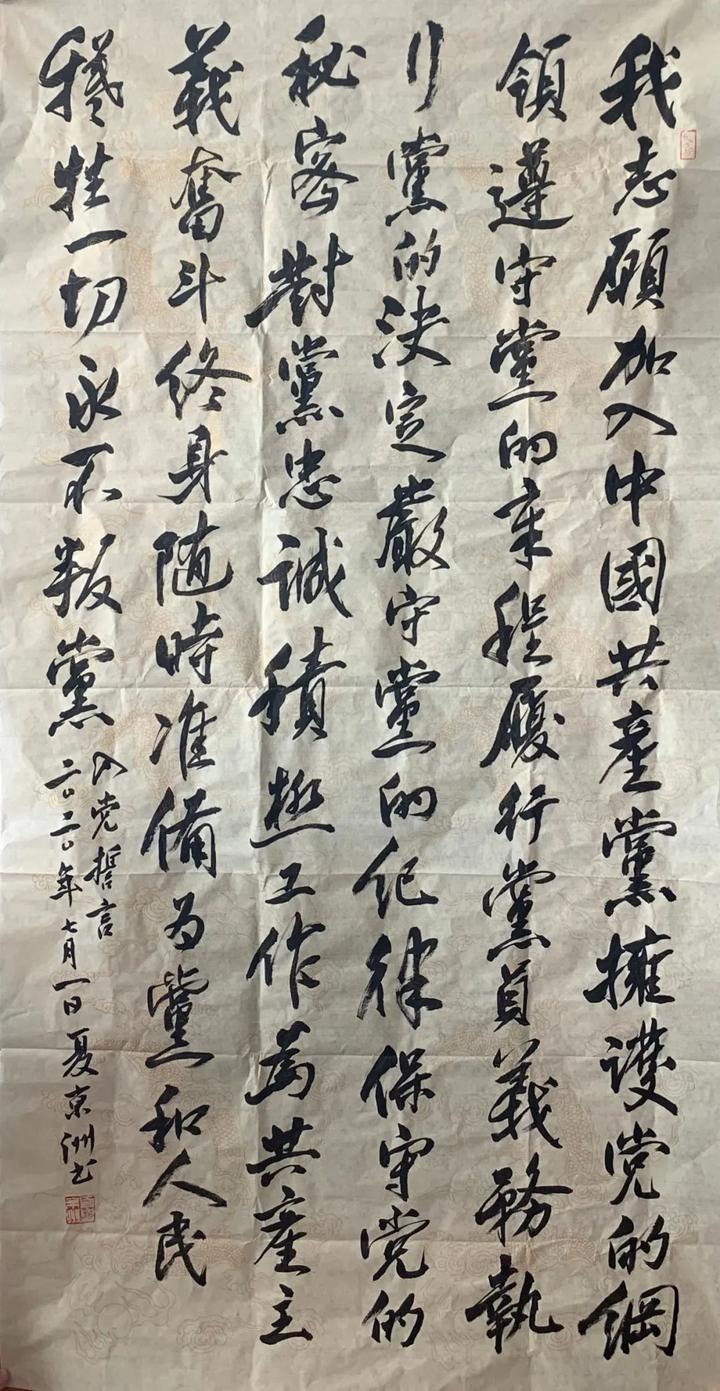 我志願加入中國共產黨擁護党的綱
領遵守黨的章程履行黨員義務執
行黨的決定嚴守黨的纪律保守党的
秘密對黨忠誠積極工作為共產主
義奮斗终身随時准備为黨和人民
犧牲一切永不叛黨
入党誓言
二〇二〇年七月一日夏京洲书